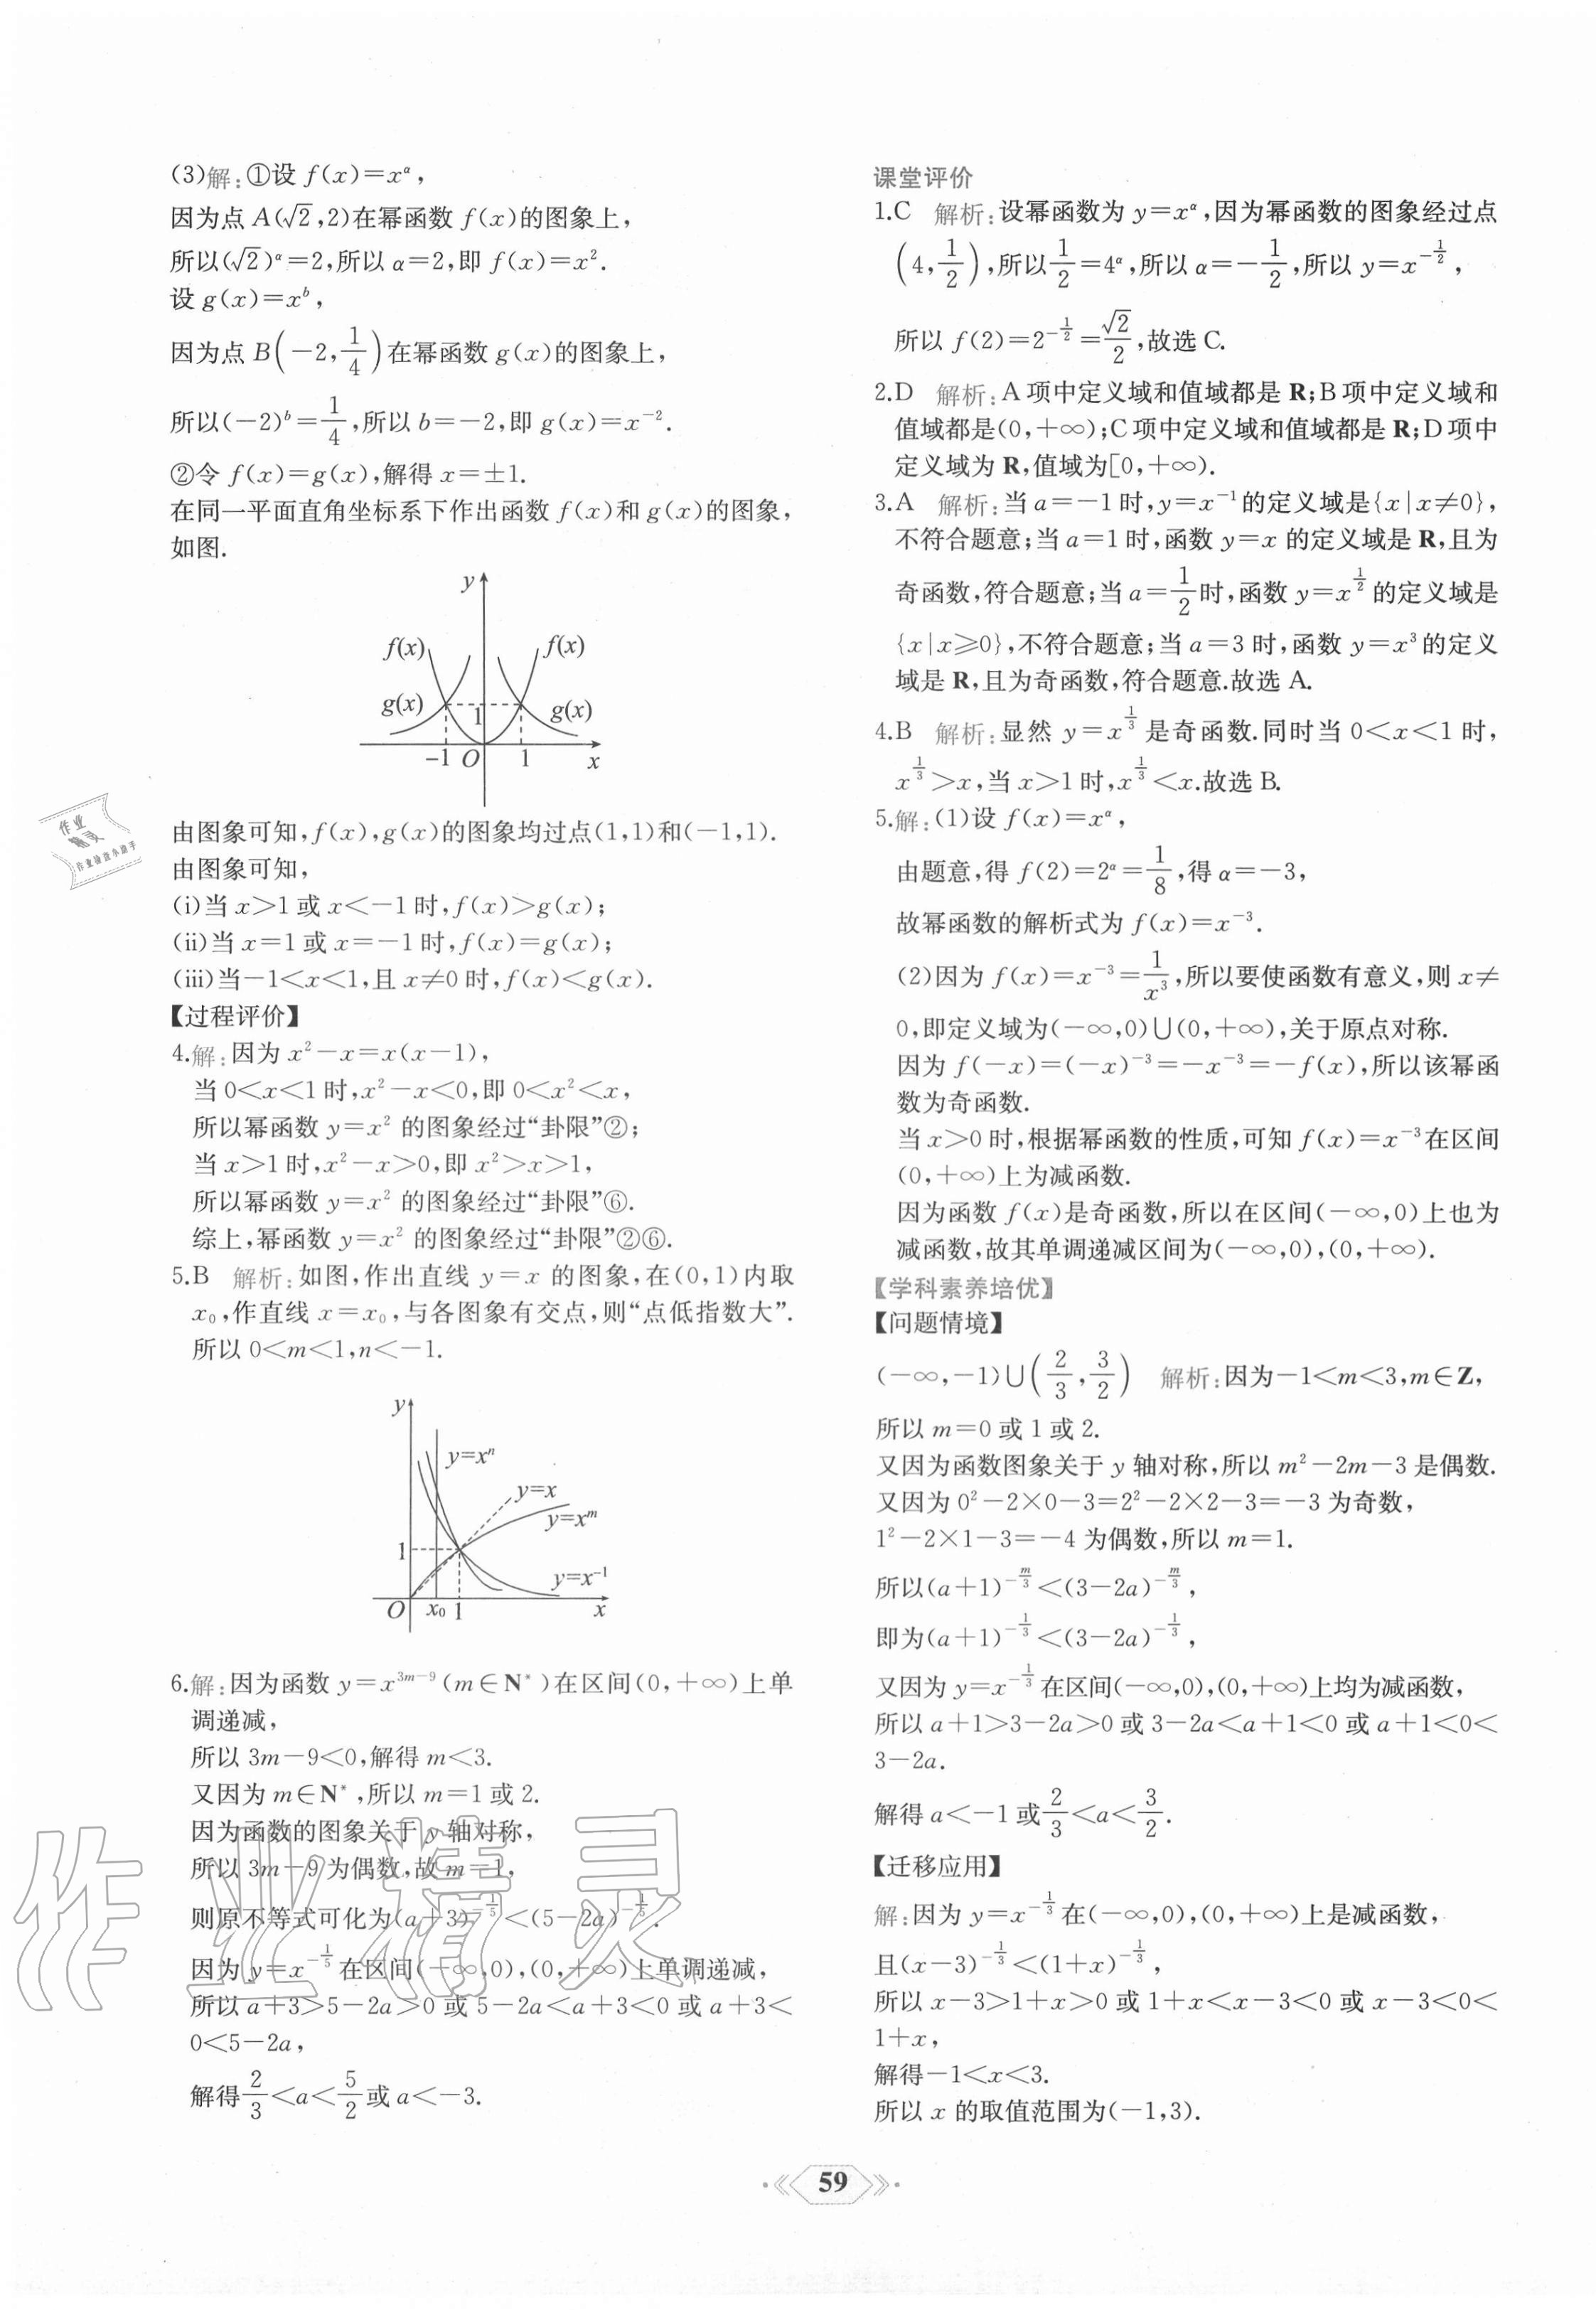 (3)解:①设 f(x)=x^α,
因为点 A(√2,2)在幂函数 f(x)的图象上,
所以(√2)^α=2,所以 α=2,即 f(x)=x².
设 g(x)=x^b,
因为点 B(-2,1/4)在幂函数 g(x)的图象上,
所以(-2)^b=1/4,所以 b=-2,即 g(x)=x^{-2}.
②令 f(x)=g(x),解得 x=±1.
在同一平面直角坐标系下作出函数 f(x)和 g(x)的图象,
如图.
y
f(x) f(x)
g(x) 1 g(x)
-1 O 1 x
由图象可知,f(x),g(x)的图象均过点(1,1)和(-1,1).
由图象可知,
(i)当 x>1 或 x<-1 时,f(x)>g(x);
(ii)当 x=1 或 x=-1 时,f(x)=g(x);
(iii)当-1<x<1,且 x≠0 时,f(x)<g(x).
【过程评价】
4.解:因为 x²-x=x(x-1),
当 0<x<1 时,x²-x<0,即 0<x²<x,
所以幂函数 y=x² 的图象经过“卦限”②;
当 x>1 时,x²-x>0,即 x²>x>1,
所以幂函数 y=x² 的图象经过“卦限”⑥.
综上,幂函数 y=x² 的图象经过“卦限”②⑥.
5.B 解析:如图,作出直线 y=x 的图象,在(0,1)内取
x₀,作直线 x=x₀,与各图象有交点,则“点低指数大”.
所以 0<m<1,n<-1.
y
y=x^n
y=x
y=x^m
1
y=x^{-1}
O x₀ 1 x
6.解:因为函数 y=x^{3m-9}(m∈N*)在区间(0,+∞)上单
调递减,
所以 3m-9<0,解得 m<3.
又因为 m∈N*,所以 m=1 或 2.
因为函数的图象关于 y 轴对称,
所以 3m-9 为偶数,故 m=1,
则原不等式可化为(a+3)^{-1/5}<(5-2a)^{-1/5}.
因为 y=x^{-1/5} 在区间(-∞,0),(0,+∞)上单调递减,
所以 a+3>5-2a>0 或 5-2a<a+3<0 或 a+3<
0<5-2a,
解得 2/3<a<5/2 或 a<-3.
课堂评价
1.C 解析:设幂函数为 y=x^α,因为幂函数的图象经过点
(4,1/2),所以 1/2=4^α,所以 α=-1/2,所以 y=x^{-1/2},
所以 f(2)=2^{-1/2}=√2/2,故选 C.
2.D 解析:A 项中定义域和值域都是 R;B 项中定义域和
值域都是(0,+∞);C 项中定义域和值域都是 R;D 项中
定义域为 R,值域为[0,+∞).
3.A 解析:当 a=-1 时,y=x^{-1}的定义域是{x|x≠0},
不符合题意;当 a=1 时,函数 y=x 的定义域是 R,且为
奇函数,符合题意;当 a=1/2时,函数 y=x^{1/2} 的定义域是
{x|x⩾0},不符合题意;当 a=3 时,函数 y=x³的定义
域是 R,且为奇函数,符合题意.故选 A.
4.B 解析:显然 y=x^{1/3} 是奇函数.同时当 0<x<1 时,
x^{1/3}>x,当 x>1 时,x^{1/3}<x.故选 B.
5.解:(1)设 f(x)=x^α,
由题意,得 f(2)=2^α=1/8,得 α=-3,
故幂函数的解析式为 f(x)=x^{-3}.
(2)因为 f(x)=x^{-3}=1/x³,所以要使函数有意义,则 x≠
0,即定义域为(-∞,0)∪(0,+∞),关于原点对称.
因为 f(-x)=(-x)^{-3}=-x^{-3}=-f(x),所以该幂函
数为奇函数.
当 x>0 时,根据幂函数的性质,可知 f(x)=x^{-3}在区间
(0,+∞)上为减函数.
因为函数 f(x)是奇函数,所以在区间(-∞,0)上也为
减函数,故其单调递减区间为(-∞,0),(0,+∞).
【学科素养培优】
【问题情境】
(-∞,-1)∪(2/3,3/2) 解析:因为-1<m<3,m∈Z,
所以 m=0 或 1 或 2.
又因为函数图象关于 y 轴对称,所以 m²-2m-3 是偶数.
又因为 0²-2×0-3=2²-2×2-3=-3 为奇数,
1²-2×1-3=-4 为偶数,所以 m=1.
所以(a+1)^{-m/3}<(3-2a)^{-m/3},
即为(a+1)^{-1/3}<(3-2a)^{-1/3},
又因为 y=x^{-1/3} 在区间(-∞,0),(0,+∞)上均为减函数,
所以 a+1>3-2a>0 或 3-2a<a+1<0 或 a+1<0<
3-2a.
解得 a<-1 或 2/3<a<3/2.
【迁移应用】
解:因为 y=x^{-1/3} 在(-∞,0),(0,+∞)上是减函数,
且(x-3)^{-1/3}<(1+x)^{-1/3},
所以 x-3>1+x>0 或 1+x<x-3<0 或 x-3<0<
1+x,
解得-1<x<3.
所以 x 的取值范围为(-1,3).
59
作业精灵
作业
精灵
作业检查小助手